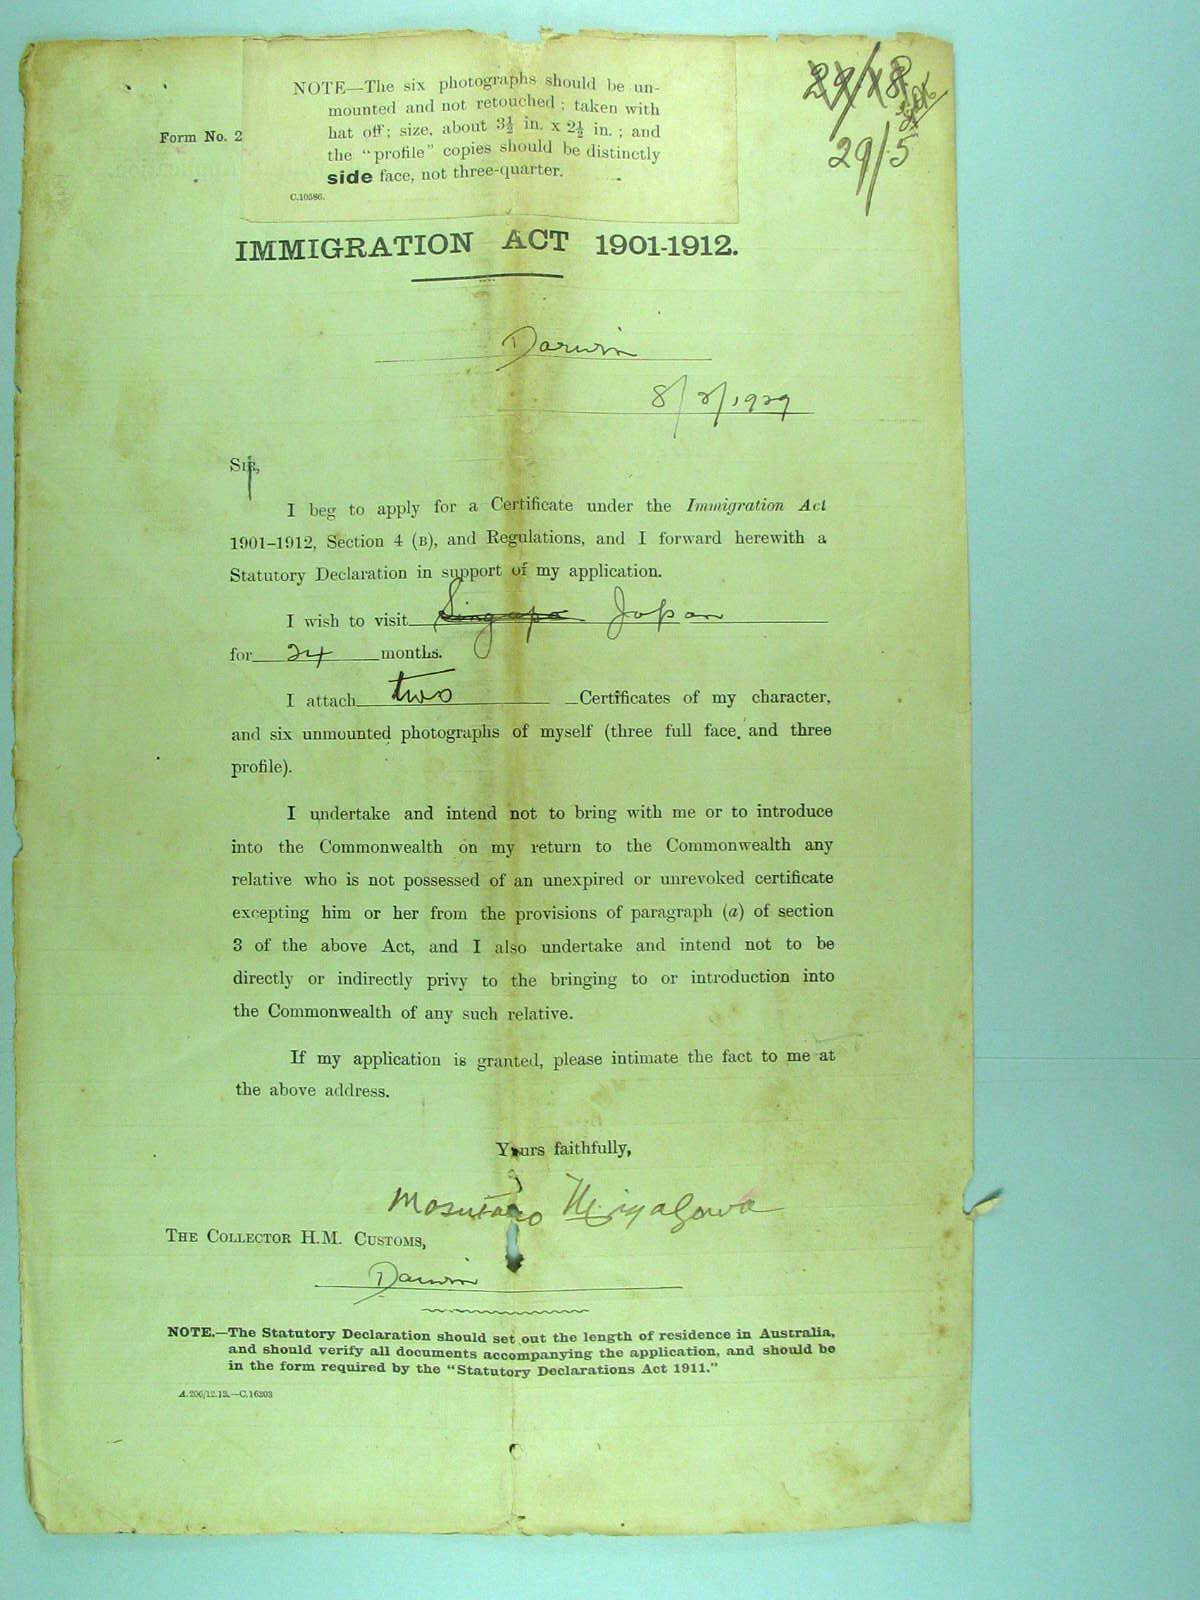 NOTE—The six photographs should be un-
mounted and not retouched ; taken with
hat off; size, about 3½ in. x 2½ in. ; and
the "profile" copies should be distinctly
side face, not three-quarter.
C.10586.
Form No. 2
29/5
IMMIGRATION ACT 1901-1912.
Darwin
8/2/1929
SIR,
I beg to apply for a Certificate under the Immigration Act
1901–1912, Section 4 (B), and Regulations, and I forward herewith a
Statutory Declaration in support of my application.
I wish to visit Singapo Japan
for 24 months.
I attach two Certificates of my character,
and six unmounted photographs of myself (three full face, and three
profile).
I undertake and intend not to bring with me or to introduce
into the Commonwealth on my return to the Commonwealth any
relative who is not possessed of an unexpired or unrevoked certificate
excepting him or her from the provisions of paragraph (a) of section
3 of the above Act, and I also undertake and intend not to be
directly or indirectly privy to the bringing to or introduction into
the Commonwealth of any such relative.
If my application is granted, please intimate the fact to me at
the above address.
Yours faithfully,
Masutaro Miyagawa
THE COLLECTOR H.M. CUSTOMS,
Darwin
NOTE.—The Statutory Declaration should set out the length of residence in Australia,
and should verify all documents accompanying the application, and should be
in the form required by the "Statutory Declarations Act 1911."
A.206/12.13.—C.16203